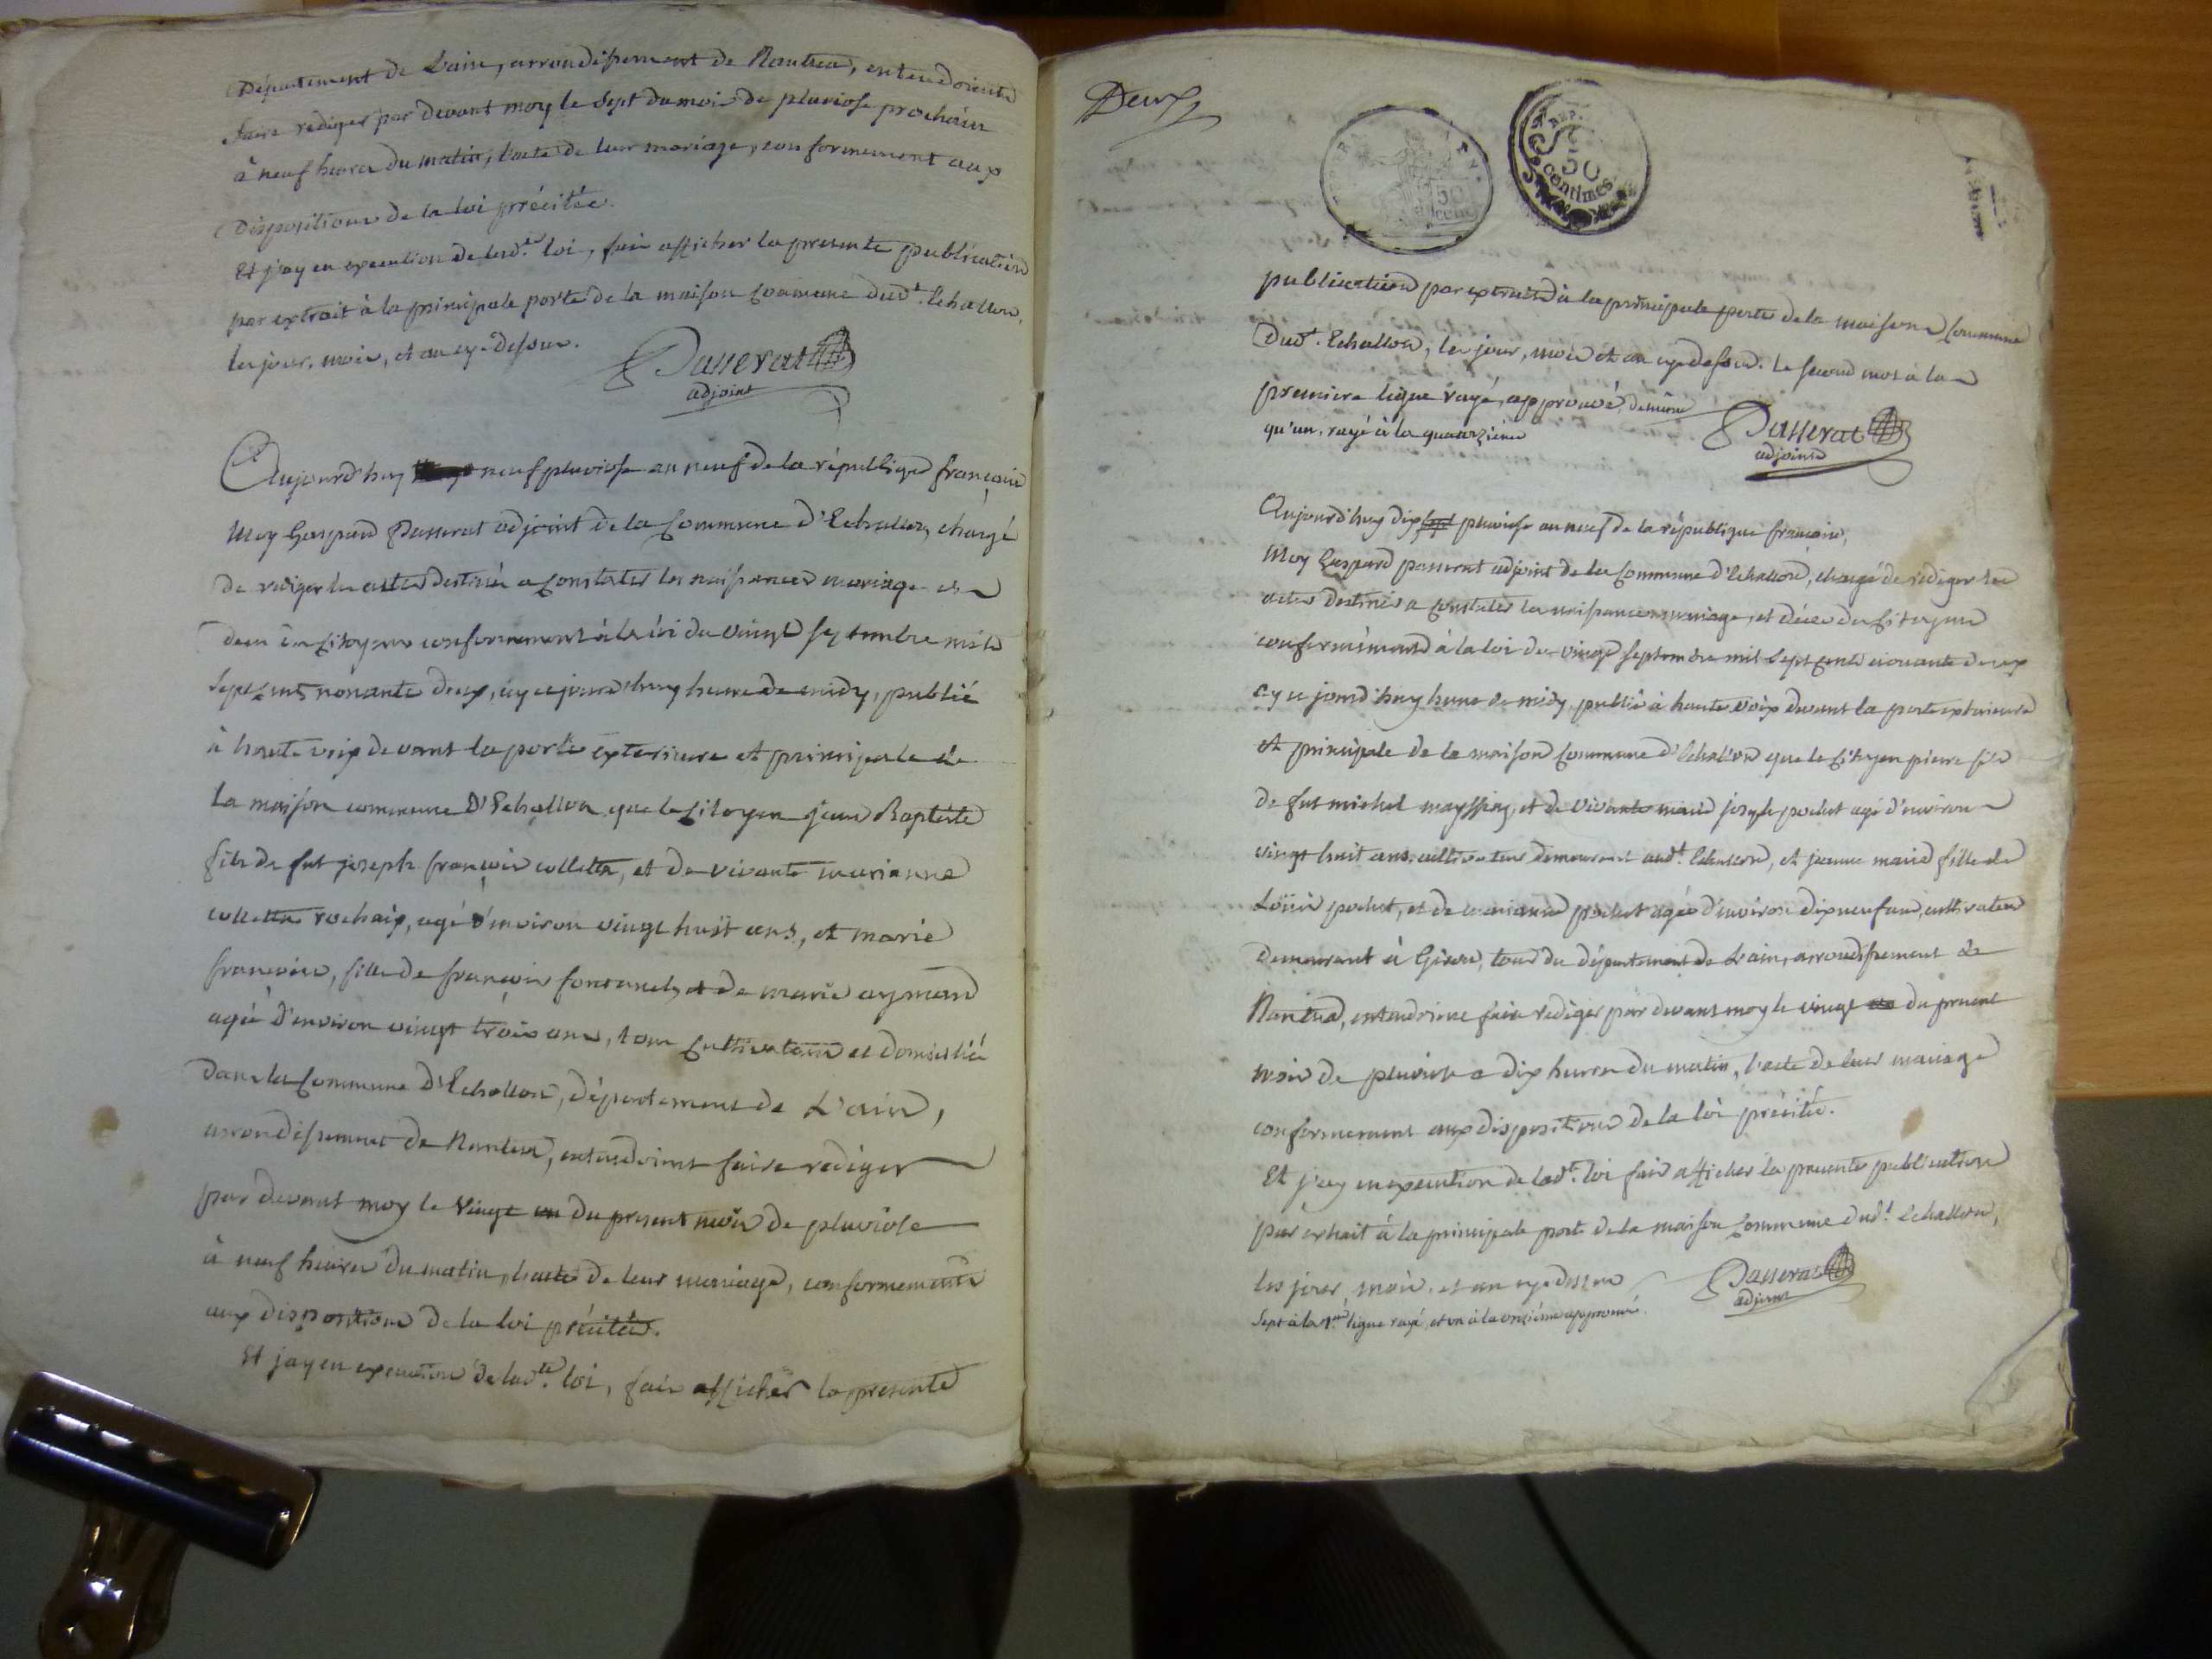 Département de L'ain, arrondissement de Nantua, entendoient
faire rédiger par devant moy le Sept du mois de pluviose prochain
à neuf heures du matin, l'acte de leur mariage, conformement aux
Dispositions de la loi précitée.
Et j'ay en execution de lad.te loi, fais afficher la presente publication
par extrait à la principale porte de la maison commune dud.t Echallon,
les jour, mois, et an cy-dessus.
Passerat
adjoint
Aujourd'huy neuf pluviose an neuf de la républiqe françoise
Moy Gaspard Passerat adjoint de la Commune d'Echallon, chargé
de rediger les actes destinés a Constater les naissances mariage et
deces des Citoyens conformement à la loi du vingt septembre mile
sept cent nonante deux, ay cejourd'huy heure de midy, publié
à haute voix devant la porte exterieure et principale de
la maison commune D'Echallon que le Citoyen jean Baptiste
fils de fut joseph françois collette, et de vivante marianne
collette rochaix, agé d'environ vingt huit ans, et marie
françoise, fille de françois fontanel, et de marie aymard
agée d'environ vingt trois ans, tous Cultivateurs et domiciliés
dans la Commune d'Echallon, département de L'ain,
arrondissement de Nantua, entendoient faire rediger
par devant moy le vingt un du present mois de pluviose
à neuf heures du matin, l'acte de leur mariage, conformement
aux dispositions de la loi précitée.
Et jay en execution de lad.te loi, fais afficher la presente
Deux
50
centimes
publication par extrait à la principale porte de la maison commune
Dud.t Echallon, les jour, mois et an cy-dessus. Le second mot à la
premiere ligne rayé, approuvé, de même
qu'un, rayé à la quatorzième
Passerat
adjoint
Aujourd'huy dix sept pluviose an neuf de la république françoise,
Moy Gaspard passerat adjoint de la Commune d'Echallon, chargé de rediger les
actes destinés a constater les naissances mariage, et décès des Citoyens
conformément à la loi du vingt septembre mil sept cent nonante deux
ay ce jourd'huy heure de midy, publié à haute voix devant la porte exterieure
et principale de la maison commune d'Echallon que le Citoyen pierre fils
de fut michel et de vivante marie josephe pochet agé d'environ
vingt huit ans, cultivateur demeurant aud.t Echallon, et jeanne marie fille de
Loüis pochet, et de marianne pochet agée d'environ dix neuf ans, cultivateur
demeurant à Giron, tous du département de L'ain, arrondissement de
Nantua, entendoient faire rediger par devant moy le vingt un du present
mois de pluviose a dix heures du matin, l'acte de leur mariage
conformement aux dispositions de la loi précitée.
Et j'ay en execution de lad.te loi fais afficher la presente publication
par extrait à la principale porte de la maison Commune dud.t Echallon,
les jour, mois, et an cy-dessus
Passerat
adjoint
Sept à la 1.ere ligne rayé, et un à la onzième approuvé.